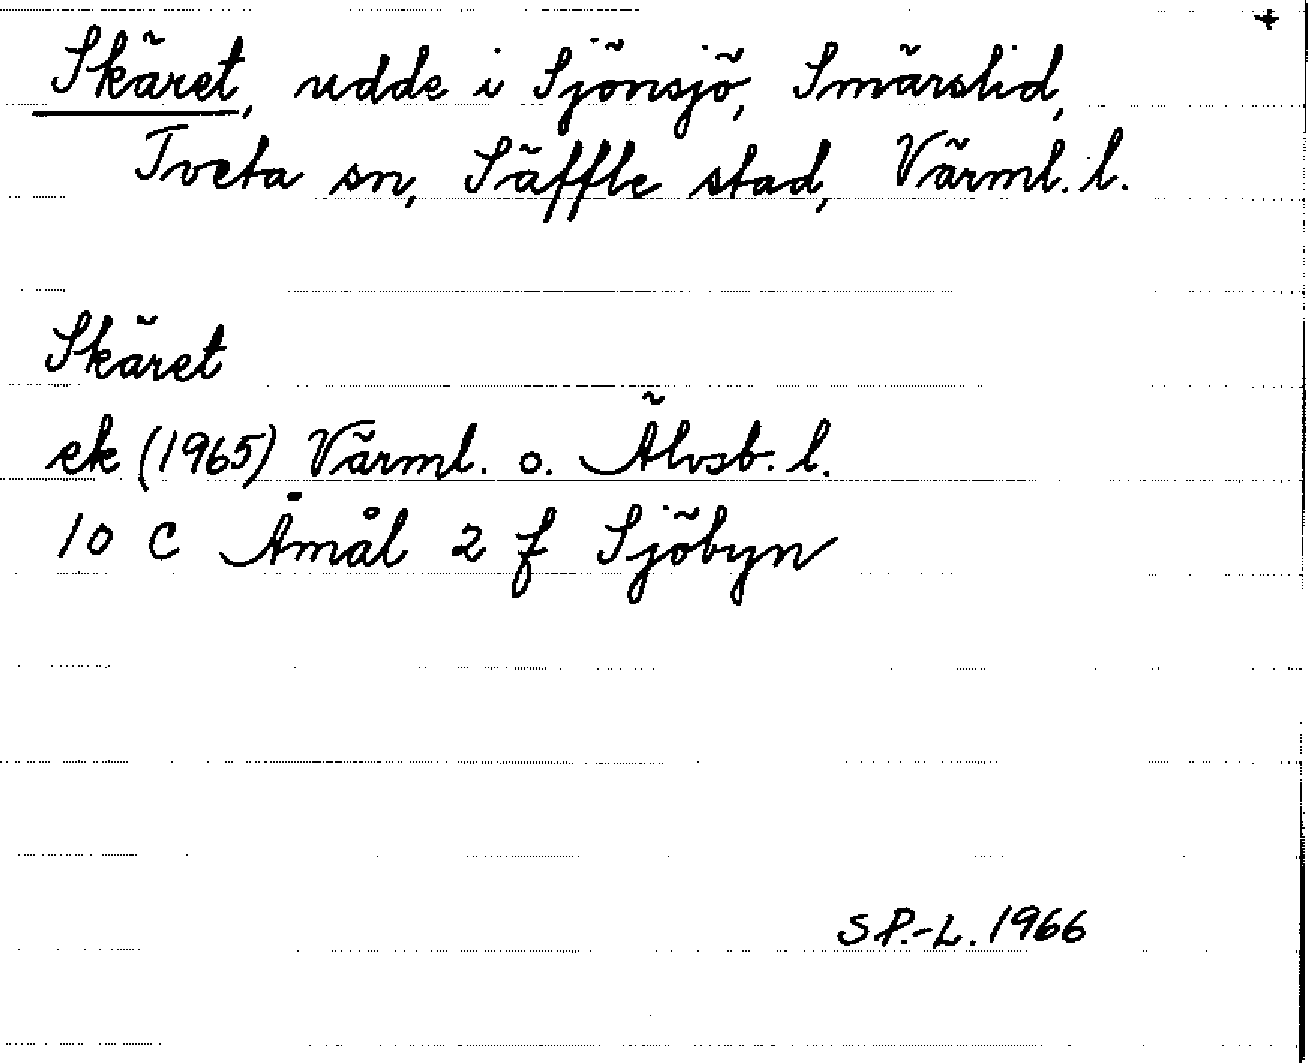 +
Skäret, udde i Sjönsjö, Smärslid,
Tveta sn, Säffle stad, Värml. l.
Skäret
ek (1965) Värml. o. Älvsb. l.
10 C Åmål 2 f Sjöbyn
S P.-L. 1966